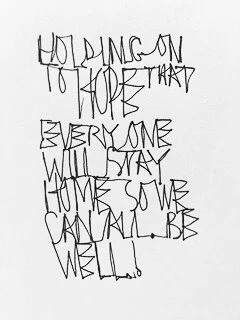 HOLDING ON
TO HOPE THAT
EVERYONE
WILL STAY
HOME SO WE
CAN ALL BE
WELL!